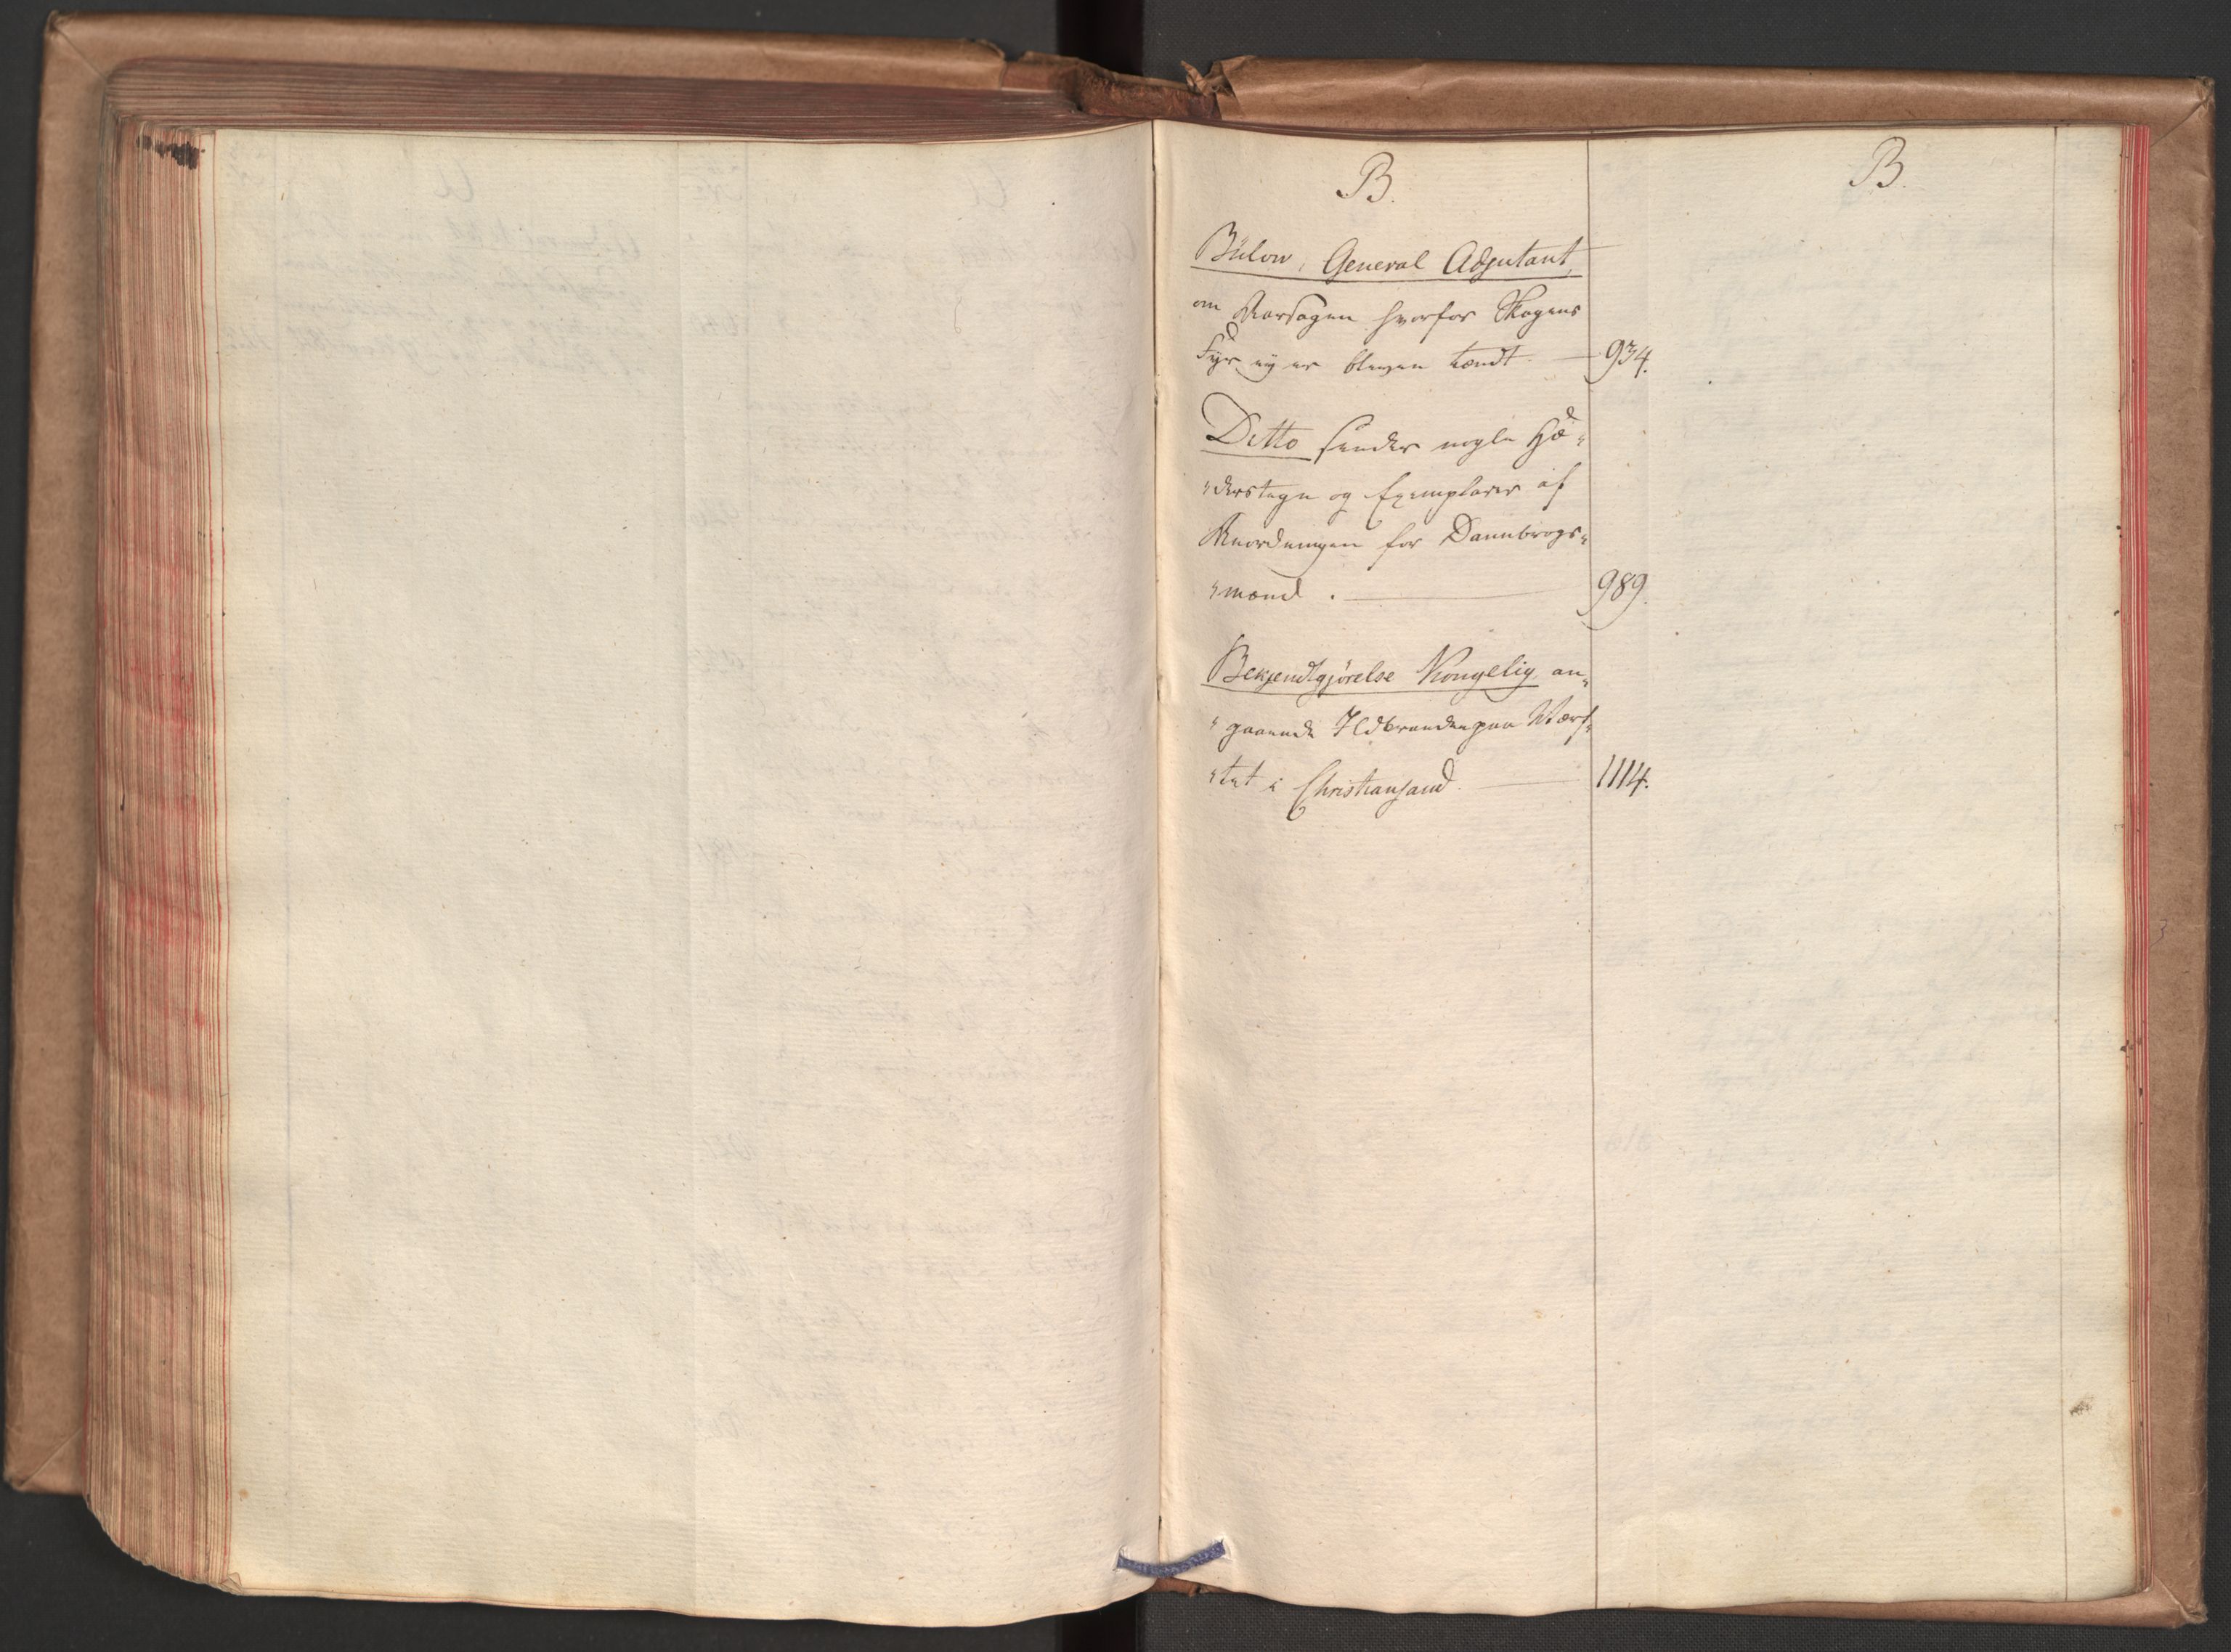 B.
Bülow, General Adjutant,
om Aarsagen hvorfor Skagens
Fyr ey er bleven tændt — 934.
Ditto sender nogle Hæ-
"derstegn og Exemplarer af
Anordningen for Dannbrogs-
"mænd. — 989.
Bekjendtgjørelse Kongelig an-
"gaaende Ildbranden paa Værf-
"tet i Christiansand. — 1114.
B.